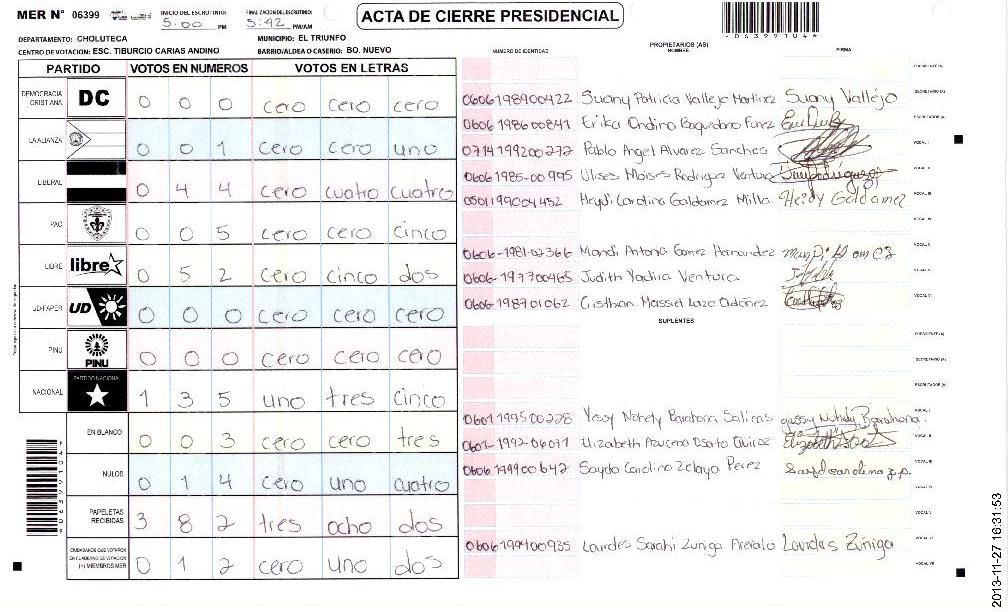 MER N° 06399 INICIO DEL ESCRUTINIO: 5:00 PM FINALIZACION DEL ESCRUTINIO: 5:42 PM/AM
ACTA DE CIERRE PRESIDENCIAL
DEPARTAMENTO: CHOLUTECA MUNICIPIO: EL TRIUNFO
CENTRO DE VOTACION: ESC. TIBURCIO CARIAS ANDINO BARRIO/ALDEA O CASERIO: BO. NUEVO
PARTIDO VOTOS EN NUMEROS VOTOS EN LETRAS
DEMOCRACIA CRISTIANA DC 0 0 0 cero cero cero
LA ALIANZA 0 0 1 cero cero uno
LIBERAL 0 4 4 cero cuatro cuatro
PAC 0 0 5 cero cero cinco
LIBRE libre 0 5 2 cero cinco dos
UD-FAPER UD 0 0 0 cero cero cero
PINU PINU 0 0 0 cero cero cero
NACIONAL PARTIDO NACIONAL 1 3 5 uno tres cinco
EN BLANCO 0 0 3 cero cero tres
NULOS 0 1 4 cero uno cuatro
PAPELETAS RECIBIDAS 3 8 2 tres ocho dos
CIUDADANOS QUE VOTARON EN CUADERNO DE VOTACION (+) MIEMBROS MER 0 1 2 cero uno dos
NUMERO DE IDENTIDAD PROPIETARIOS (AS) NOMBRE FIRMA
PRESIDENTE (A)
0606198900422 Suany Patricia Vallejo Martinez Suany Vallejo SECRETARIO (A)
0606 1986 00841 Erika Ondina ESCRUTADOR (A)
0714199200272 Pablo Angel Alvarez Sanches VOCAL I
0606 1985-00995 Ulises Moises Rodriguez Ventura VOCAL II
0501199004432 Heydi Carolina Galdamez Milla Heidy Galdamez VOCAL III
VOCAL IV
0606-1981-02366 Antonia Gomez Hernandez VOCAL V
0606-197700465 Judith Yadira Ventura
0606-198701062 Cristhian Massiel Lazo Ordoñez VOCAL VI
SUPLENTES
PRESIDENTE (A)
SECRETARIO (A)
ESCRUTADOR (A)
0601199500228 Yessy Nohely Barahona Salinas VOCAL I
0601-1992-06071 Elizabeth Azucena VOCAL II
0606 199900642 Sayda Carolina Zelaya Perez VOCAL III
VOCAL IV
VOCAL V
0606199400935 Lourdes Sarahi Zuniga Lourdes Zúniga VOCAL VI
VOCAL VII
2013-11-27 16:31:53